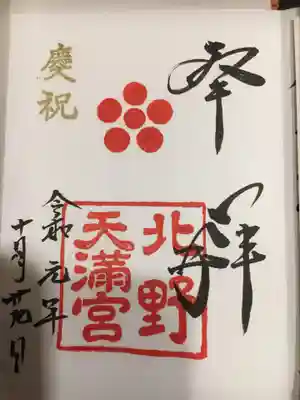 奉拝
北野
天満宮
慶祝
令和元年
十月
日